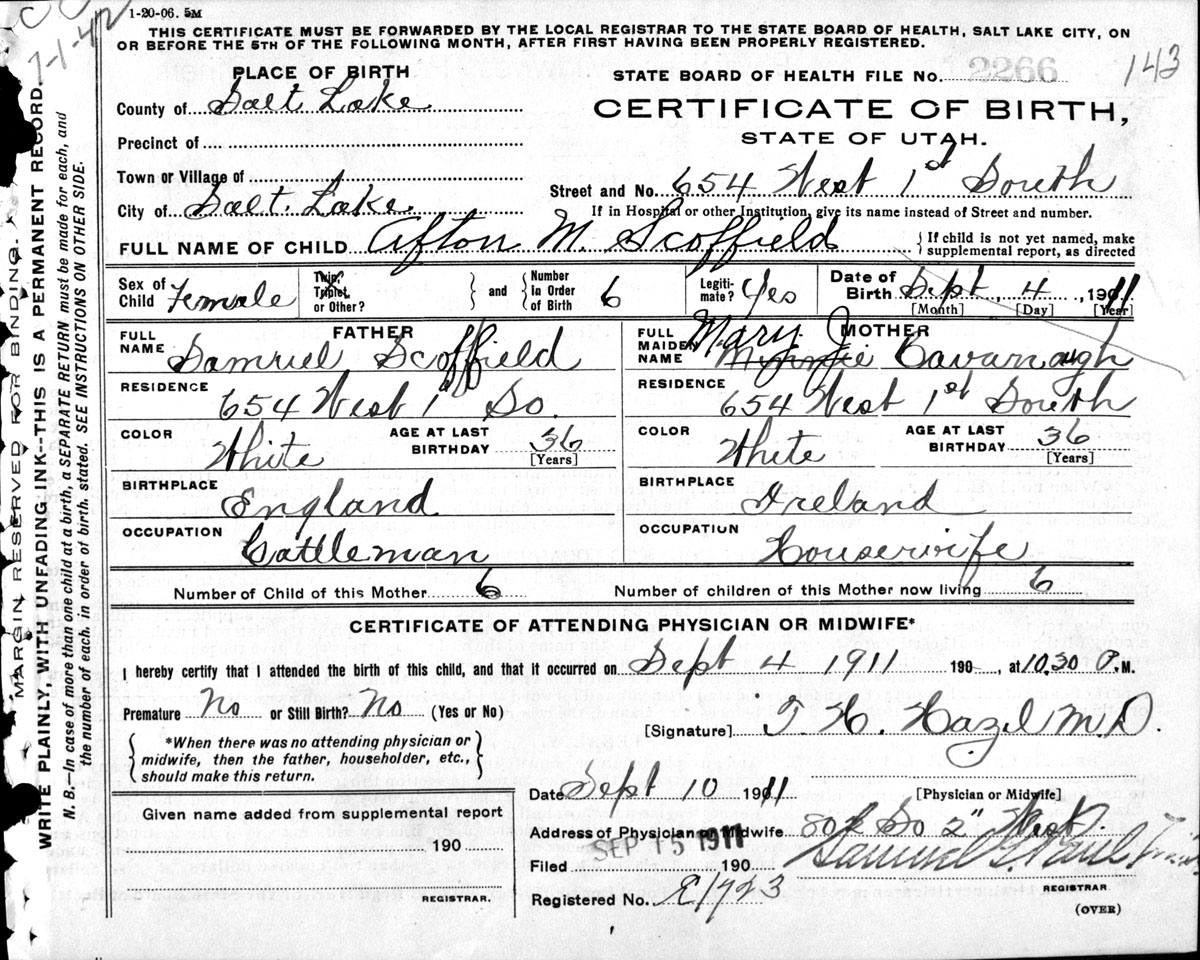 1-20-06. 5M
THIS CERTIFICATE MUST BE FORWARDED BY THE LOCAL REGISTRAR TO THE STATE BOARD OF HEALTH, SALT LAKE CITY, ON
OR BEFORE THE 5TH OF THE FOLLOWING MONTH, AFTER FIRST HAVING BEEN PROPERLY REGISTERED.
7-1-42
143
PLACE OF BIRTH
STATE BOARD OF HEALTH FILE NO. 2266
County of Salt Lake
CERTIFICATE OF BIRTH,
STATE OF UTAH.
Precinct of
Town or Village of
Street and No. 654 West 1st South
City of Salt Lake
If in Hospital or other Institution, give its name instead of Street and number.
FULL NAME OF CHILD Afton M. Scoffield
{If child is not yet named, make
supplemental report, as directed
Sex of Child Female
Twin, Triplet, or Other?
and
Number in Order of Birth 6
Legitimate? Yes
Date of Birth Sept. 4, 1911
[Month] [Day] [Year]
FATHER
FULL NAME Samuel Scoffield
MOTHER
FULL MAIDEN NAME Mary J Minnie Cavanagh
RESIDENCE 654 West 1st So.
RESIDENCE 654 West 1st South
COLOR White AGE AT LAST BIRTHDAY 36 [Years]
COLOR White AGE AT LAST BIRTHDAY 36 [Years]
BIRTHPLACE England
BIRTHPLACE Ireland
OCCUPATION Cattleman
OCCUPATION Housewife
Number of Child of this Mother 6 Number of children of this Mother now living 6
CERTIFICATE OF ATTENDING PHYSICIAN OR MIDWIFE*
I hereby certify that I attended the birth of this child, and that it occurred on Sept 4 1911 190 , at 10.30 P.M.
Premature No or Still Birth? No (Yes or No)
[Signature] T. H. Hazel M.D.
{*When there was no attending physician or
midwife, then the father, householder, etc.,
should make this return.}
Date Sept 10 1911
[Physician or Midwife]
Given name added from supplemental report
Address of Physician or Midwife 802 So 2" West.
190
Filed SEP 15 1911 190
Samuel G. Paul
REGISTRAR.
Registered No. E1723
REGISTRAR
(OVER)
MARGIN RESERVED FOR BINDING.
WRITE PLAINLY, WITH UNFADING INK--THIS IS A PERMANENT RECORD.
N. B.--In case of more than one child at a birth, a SEPARATE RETURN must be made for each, and
the number of each, in order of birth, stated. SEE INSTRUCTIONS ON OTHER SIDE.